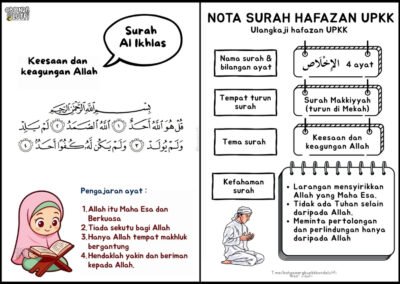 Surah
Al Ikhlas
Keesaan dan
keagungan Allah
بِسْمِ اللَّهِ الرَّحْمَٰنِ الرَّحِيمِ
قُلْ هُوَ اللَّهُ أَحَدٌ ١ اللَّهُ الصَّمَدُ ٢ لَمْ يَلِدْ
وَلَمْ يُولَدْ ٣ وَلَمْ يَكُن لَّهُ كُفُوًا أَحَدٌ ٤
Pengajaran ayat :
1. Allah itu Maha Esa dan
Berkuasa
2. Tiada sekutu bagi Allah
3. Hanya Allah tempat makhluk
bergantung
4. Hendaklah yakin dan beriman
kepada Allah.
NOTA SURAH HAFAZAN UPKK
Ulangkaji hafazan UPKK
Nama surah &
bilangan ayat
الإِخْلَاص 4 ayat
Tempat turun
surah
Surah Makkiyyah
(turun di Mekah)
Tema surah
Keesaan dan
keagungan Allah
Kefahaman
surah
• Larangan mensyirikkan
Allah yang Maha Esa.
• Tidak ada Tuhan selain
daripada Allah.
• Meminta pertolongan
dan perlindungan hanya
daripada Allah